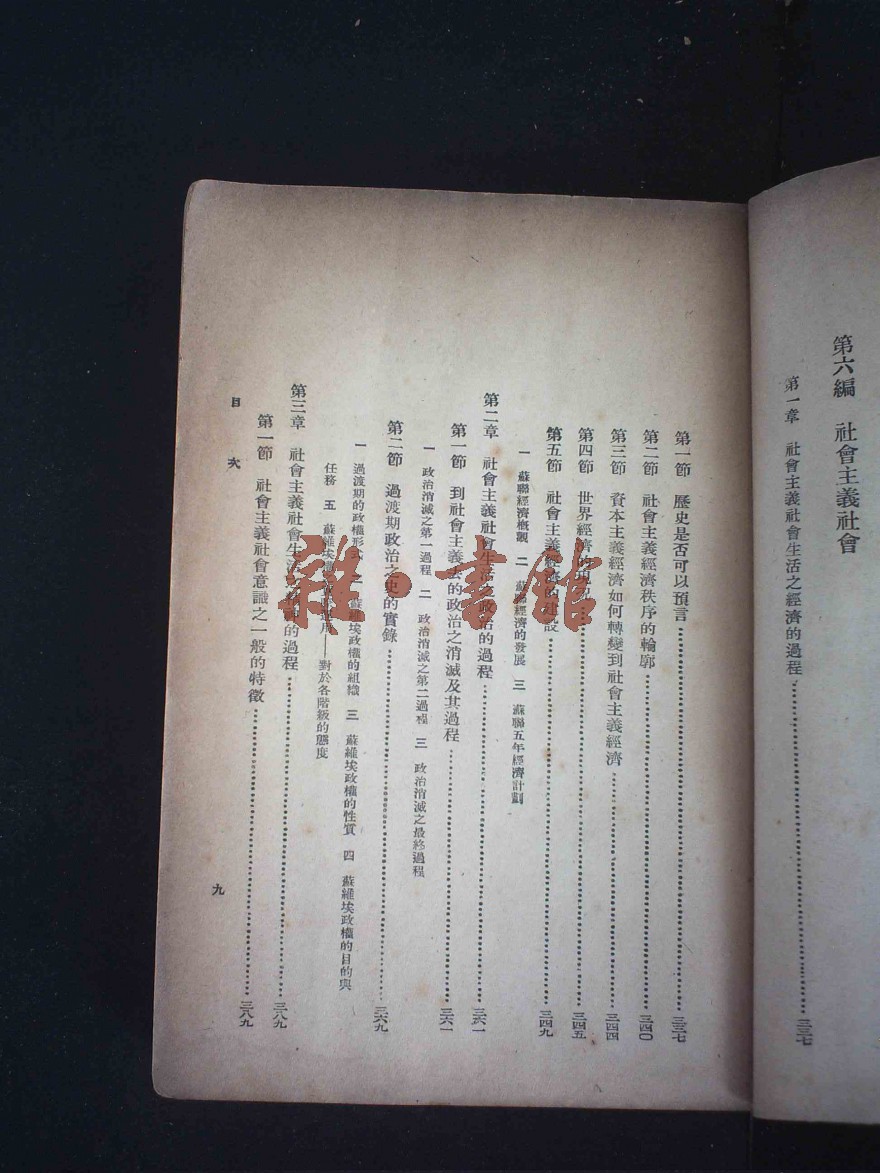 第六編　社會主義社會
第一章　社會主義社會生活之經濟的過程…三三七
第一節　歷史是否可以預言…三三七
第二節　社會主義經濟秩序的輪廓…三四〇
第三節　資本主義經濟如何轉變到社會主義經濟…三四四
第四節　世界經濟的現況…三四五
第五節　社會主義經濟的建設…三四九
一　蘇聯經濟概觀　二　蘇聯經濟的發展　三　蘇聯五年經濟計劃
第二章　社會主義社會生活之政治的過程…三六一
第一節　到社會主義去的政治之消滅及其過程…三六一
一　政治消滅之第一過程　二　政治消滅之第二過程　三　政治消滅之最終過程
第二節　過渡期政治之史的實錄…三六九
一　過渡期的政權形式　二　蘇維埃政權的組織　三　蘇維埃政權的性質　四　蘇維埃政權的目的與
任務　五　蘇維埃──對於各階級的態度
第三章　社會主義社會生活之精神的過程…三八九
第一節　社會主義社會意識之一般的特徵…三八九
目　次
九
雜·書館